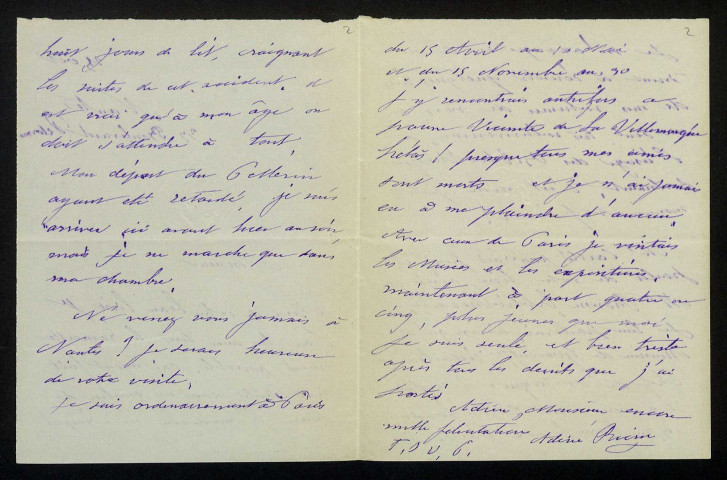 2
huit jours de lit, craignant
les suites de cet accident. Il
est vrai qu'à mon âge on
doit s'attendre à tout
Mon départ du Pellerin
ayant été retardé, je suis
arrivée ici avant hier au soir,
mais je ne marche que dans
ma chambre.
Ne venez vous jamais à
Nantes ? je serais heureuse
de votre visite,
je suis ordinairement à Paris
2
du 15 Avril au
et du 15 Novembre au 30
j'y rencontrais autrefois ce
pauvre Vicomte de La Villemarqué
hélas ! presque tous mes amis
sont morts et je n'ai jamais
eu à me plaindre d'aucun.
Avec ceux de Paris je visitais
les Musées et les expositions,
maintenant à part quatre ou
cinq, plus jeunes que moi
je suis seule et bien triste
après tous les deuils que j'ai
portés
Adieu, Monsieur, encore
mille félicitations